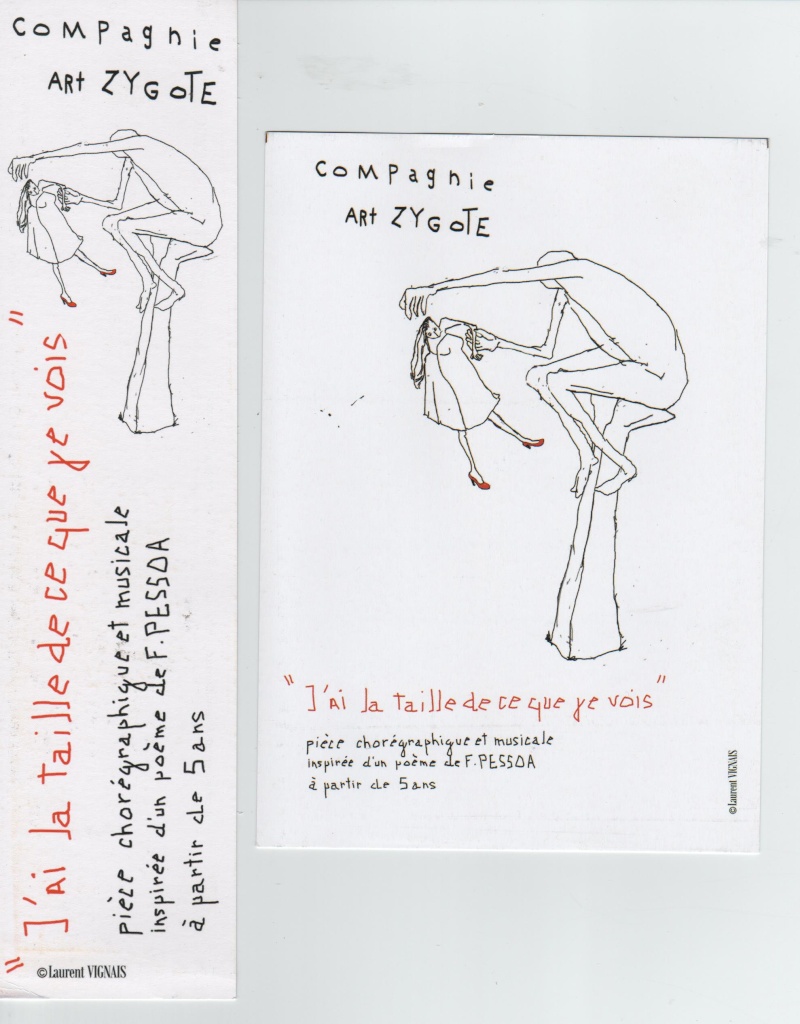 COMPagnie
ART ZYGOTE
"J'Ai la taille de ce que je vois"
pièce chorégraphique et musicale
inspirée d'un poème de F.PESSOA
à partir de 5 ans
©Laurent VIGNAIS
COMPagnie
ART ZYGOTE
"J'Ai la taille de ce que je vois"
pièce chorégraphique et musicale
inspirée d'un poème de F.PESSOA
à partir de 5 ans
©Laurent VIGNAIS